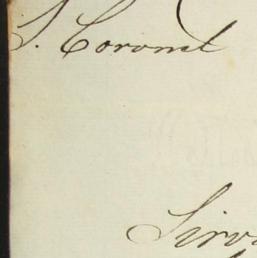 S. Coronel
Sirv